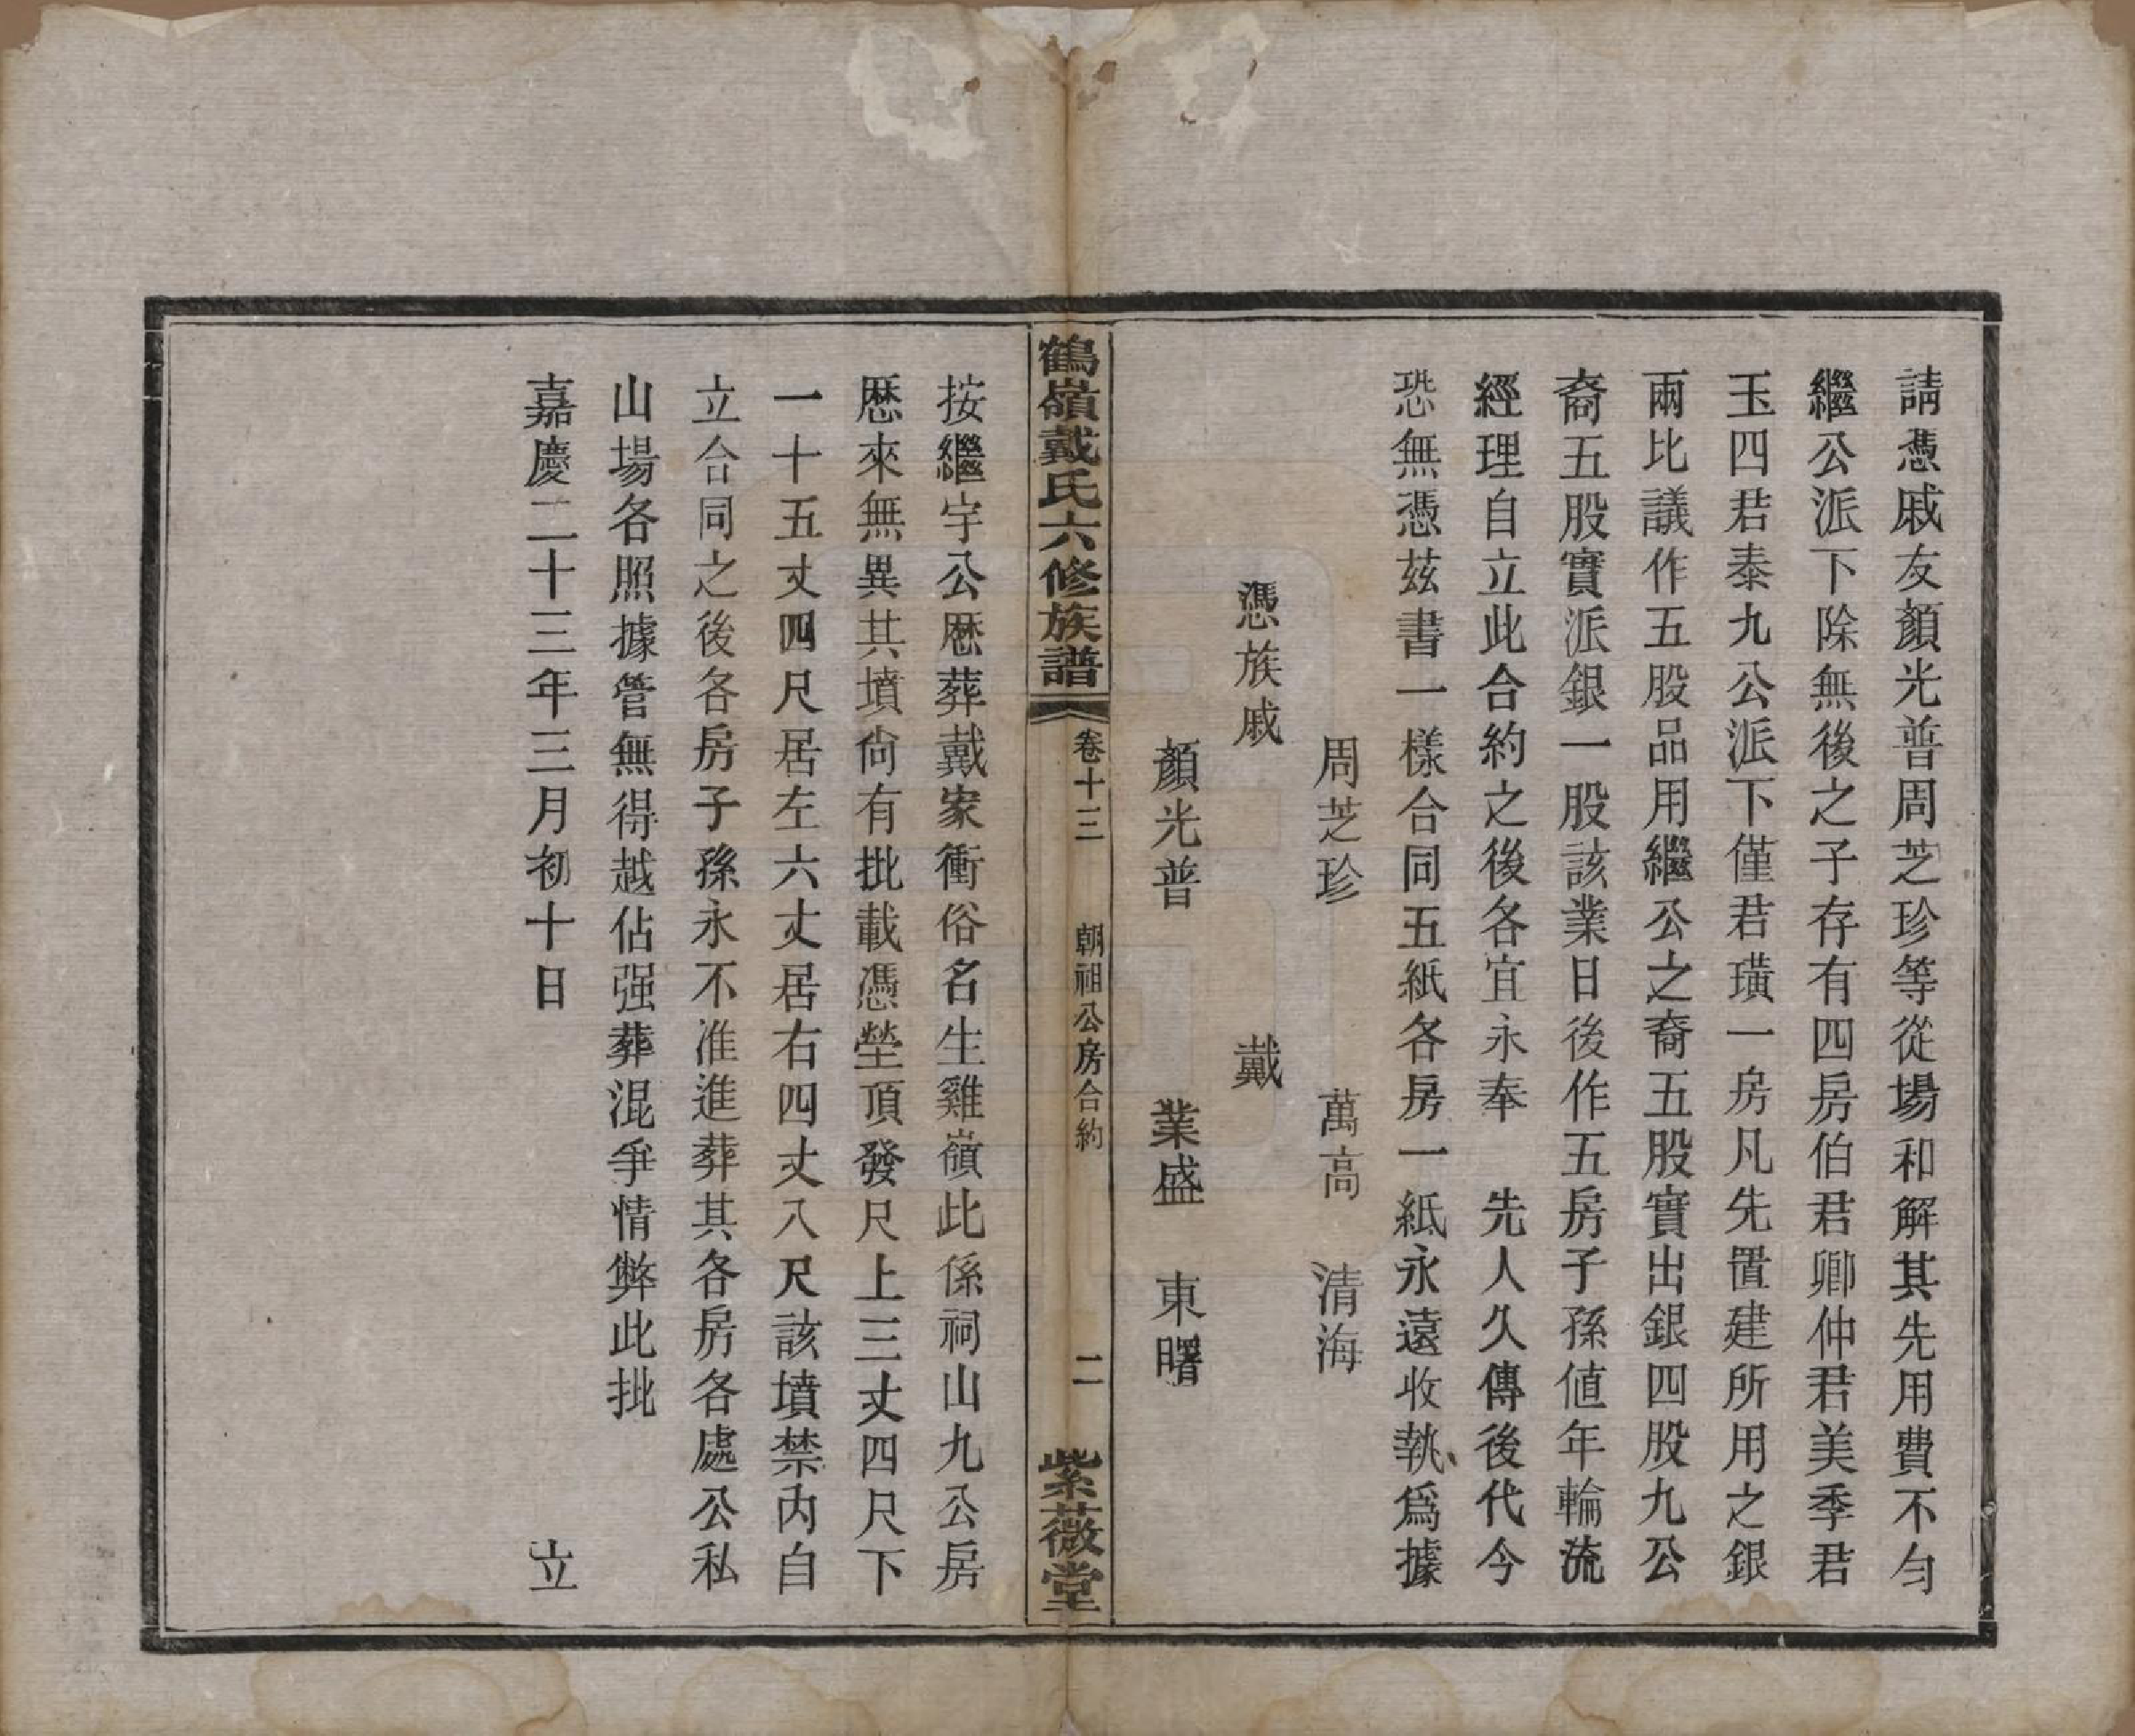 請憑戚友顏光普周芝珍等從場和解其先用費不勻
繼公派下除無後之子存有四房伯君卿仲君美季君
玉四君泰九公派下僅君璜一房凡先置建所用之銀
兩比議作五股品用繼公之裔五股實出銀四股九公
裔五股實派銀一股該業日後作五房子孫値年輪流
經理自立此合約之後各宜永奉　先人久傳後代今
恐無憑茲書一樣合同五紙各房一紙永遠收執爲據
周芝珍　萬高　清海
憑族戚　戴
顏光普　業盛　東曙
鶴嶺戴氏六修族譜　卷十三　朝祖公房合約　二　紫薇堂
按繼宇公厯葬戴家衝俗名生雞嶺此係祠山九公房
厯來無異其墳尙有批載憑塋頂發尺上三丈四尺下
一十五丈四尺居左六丈居右四丈八尺該墳禁內自
立合同之後各房子孫永不准進葬其各房各處公私
山場各照據管無得越佔强葬混爭情弊此批
嘉慶二十三年三月初十日　立